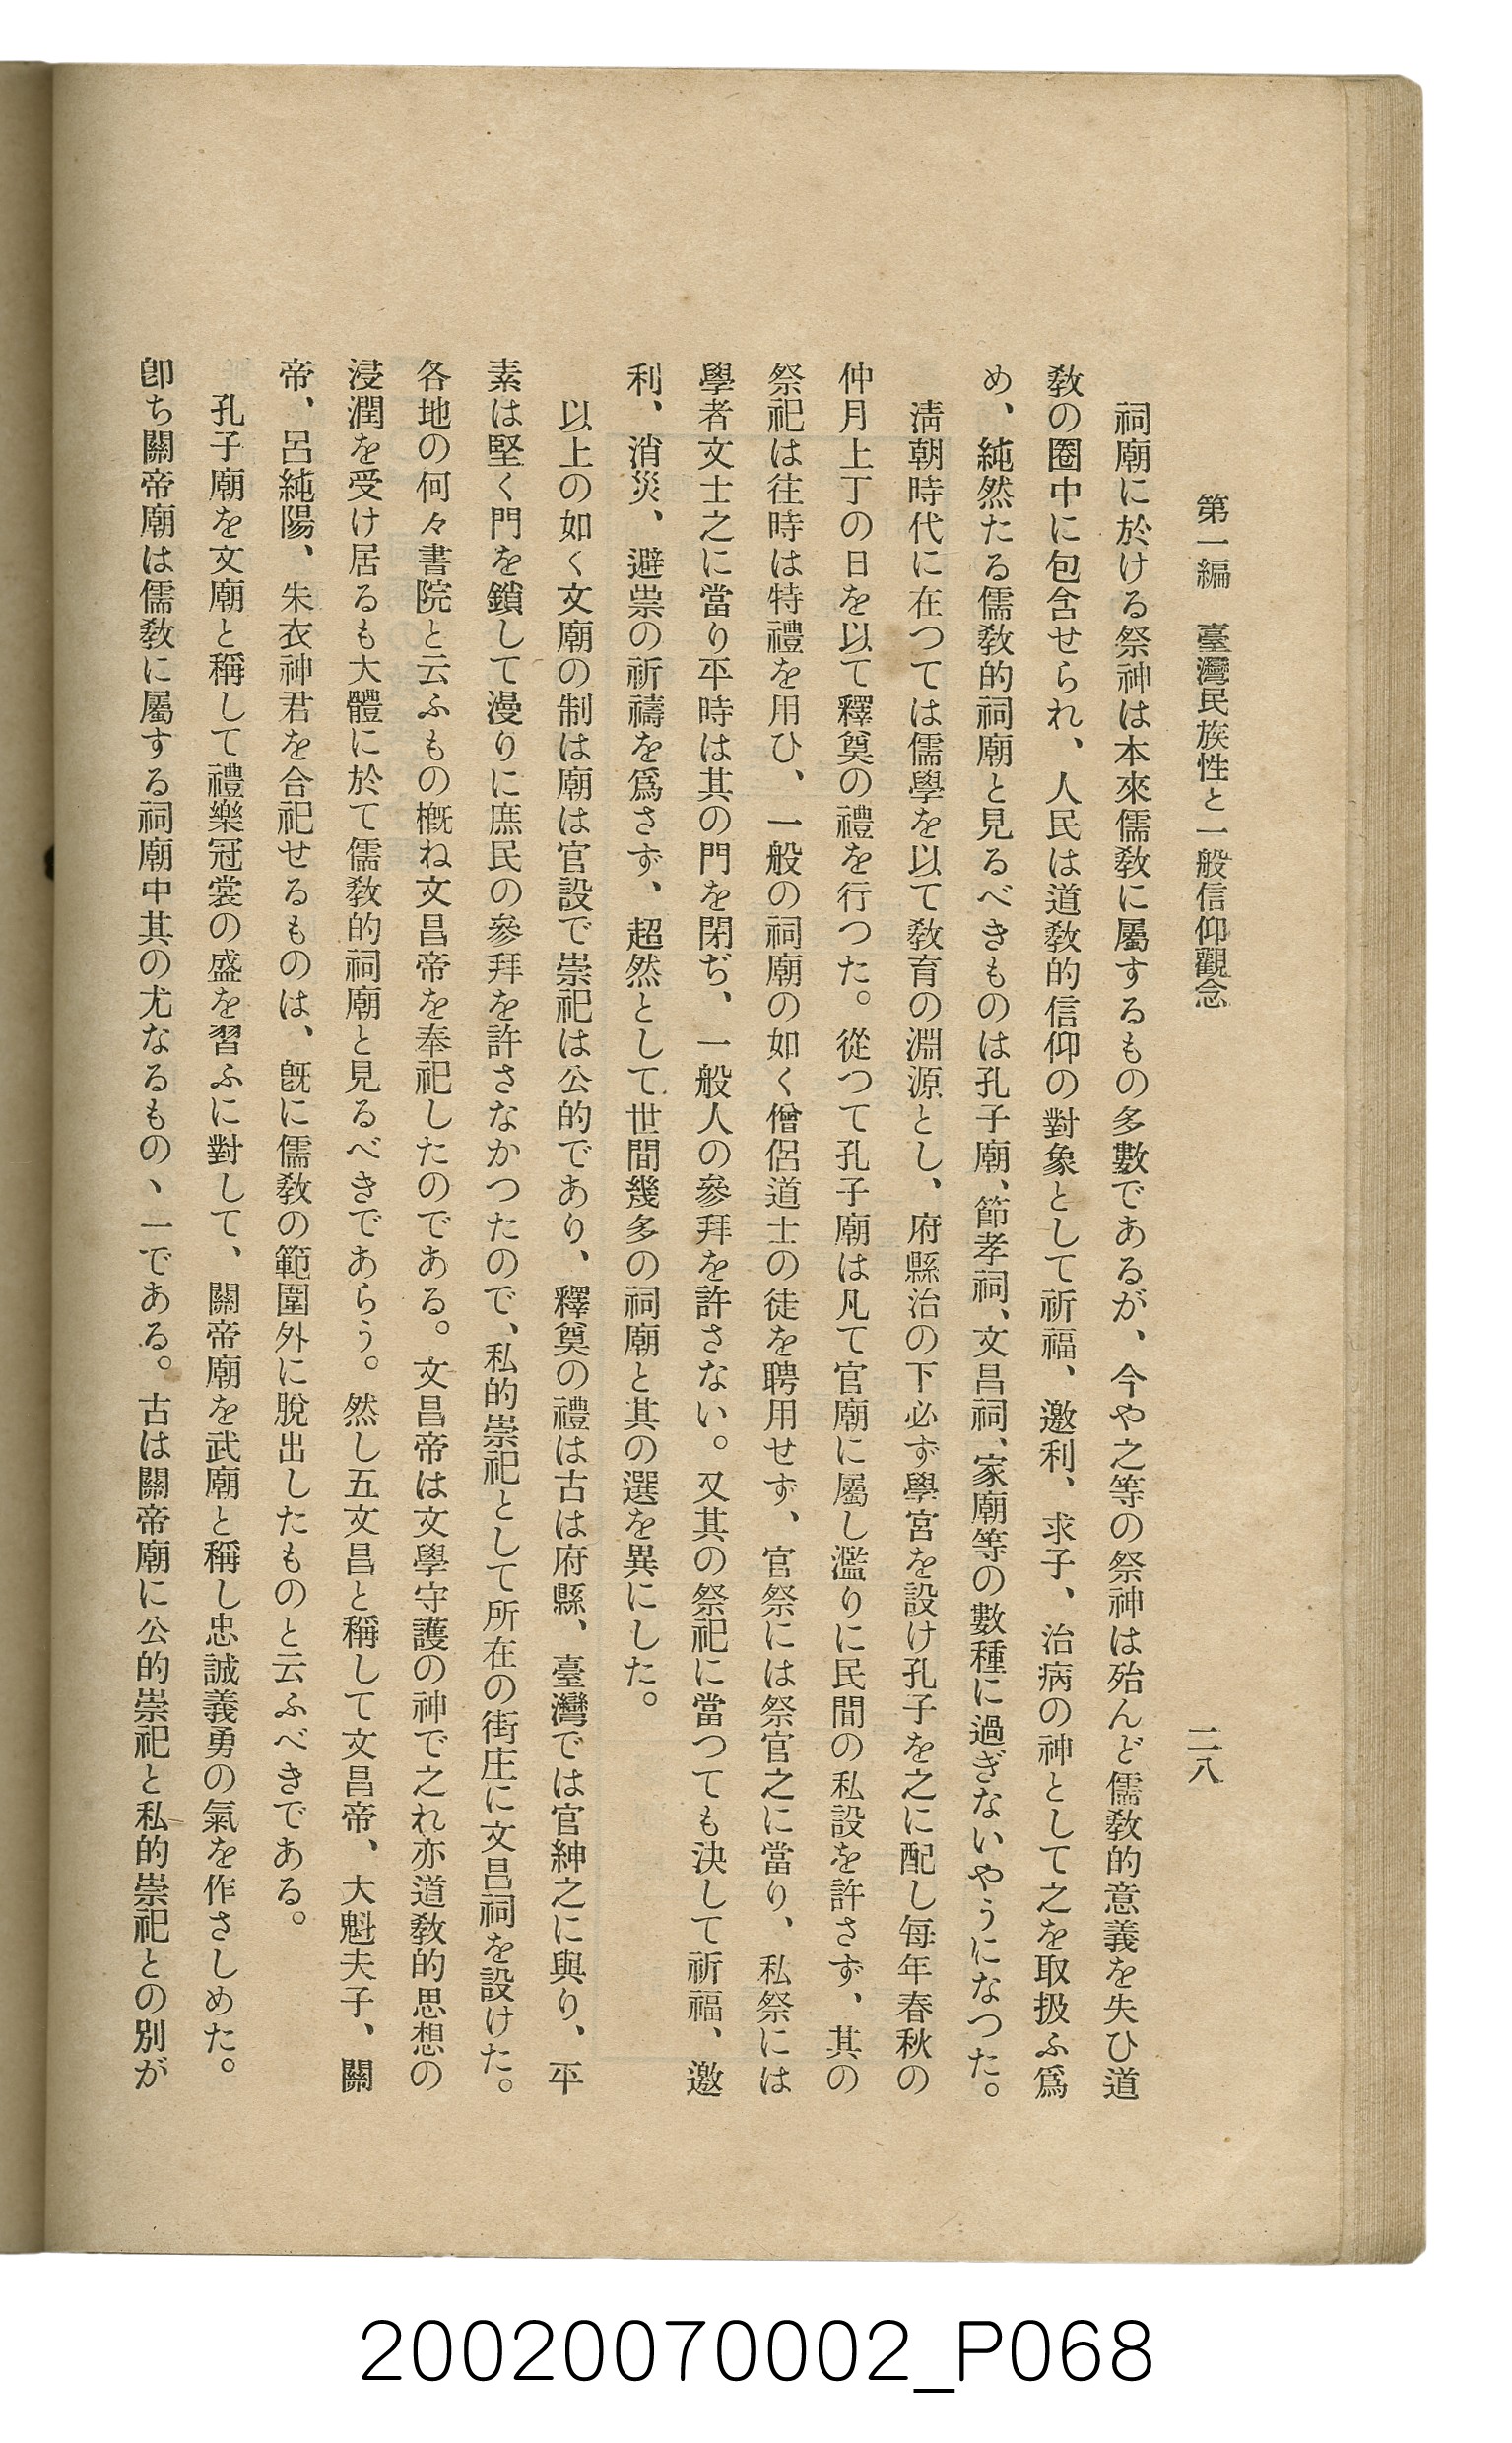 第一編　臺灣民族性と一般信仰觀念
二八
祠廟に於ける祭神は本來儒敎に屬するもの多數であるが、今や之等の祭神は殆んど儒敎的意義を失ひ道
敎の圈中に包含せられ、人民は道敎的信仰の對象として祈福、邀利、求子、治病の神として之を取扱ふ爲
め、純然たる儒敎的祠廟と見るべきものは孔子廟、節孝祠、文昌祠、家廟等の數種に過ぎないやうになつた。
淸朝時代に在つては儒學を以て敎育の淵源とし、府縣治の下必ず學宮を設け孔子を之に配し每年春秋の
仲月上丁の日を以て釋奠の禮を行つた。從つて孔子廟は凡て官廟に屬し濫りに民間の私設を許さず、其の
祭祀は往時は特禮を用ひ、一般の祠廟の如く僧侶道士の徒を聘用せず、官祭には祭官之に當り、私祭には
學者文士之に當り平時は其の門を閉ぢ、一般人の參拜を許さない。又其の祭祀に當つても決して祈福、邀
利、消災、避祟の祈禱を爲さず、超然として世間幾多の祠廟と其の選を異にした。
以上の如く文廟の制は廟は官設で崇祀は公的であり、釋奠の禮は古は府縣、臺灣では官紳之に與り、平
素は堅く門を鎖して漫りに庶民の參拜を許さなかつたので、私的崇祀として所在の街庄に文昌祠を設けた。
各地の何々書院と云ふもの槪ね文昌帝を奉祀したのである。文昌帝は文學守護の神で之れ亦道敎的思想の
浸潤を受け居るも大體に於て儒敎的祠廟と見るべきであらう。然し五文昌と稱して文昌帝、大魁夫子、關
帝、呂純陽、朱衣神君を合祀せるものは、旣に儒敎の範圍外に脫出したものと云ふべきである。
孔子廟を文廟と稱して禮樂冠裳の盛を習ふに對して、關帝廟を武廟と稱し忠誠義勇の氣を作さしめた。
卽ち關帝廟は儒敎に屬する祠廟中其の尤なるもの、一である。古は關帝廟に公的崇祀と私的崇祀との別が
20020070002_P068